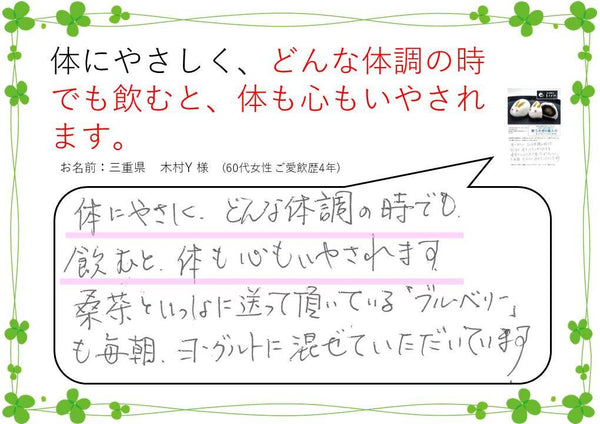 体にやさしく、どんな体調の時
でも飲むと、体も心もいやされ
ます。
お名前：三重県　木村Y 様　(60代女性 ご愛飲歴4年)
体にやさしく、どんな体調の時でも、
飲むと、体も心もいやされます
桑茶といっしょに送って頂いている「ブルーベリー」
も毎朝、ヨーグルトに混ぜていただいています